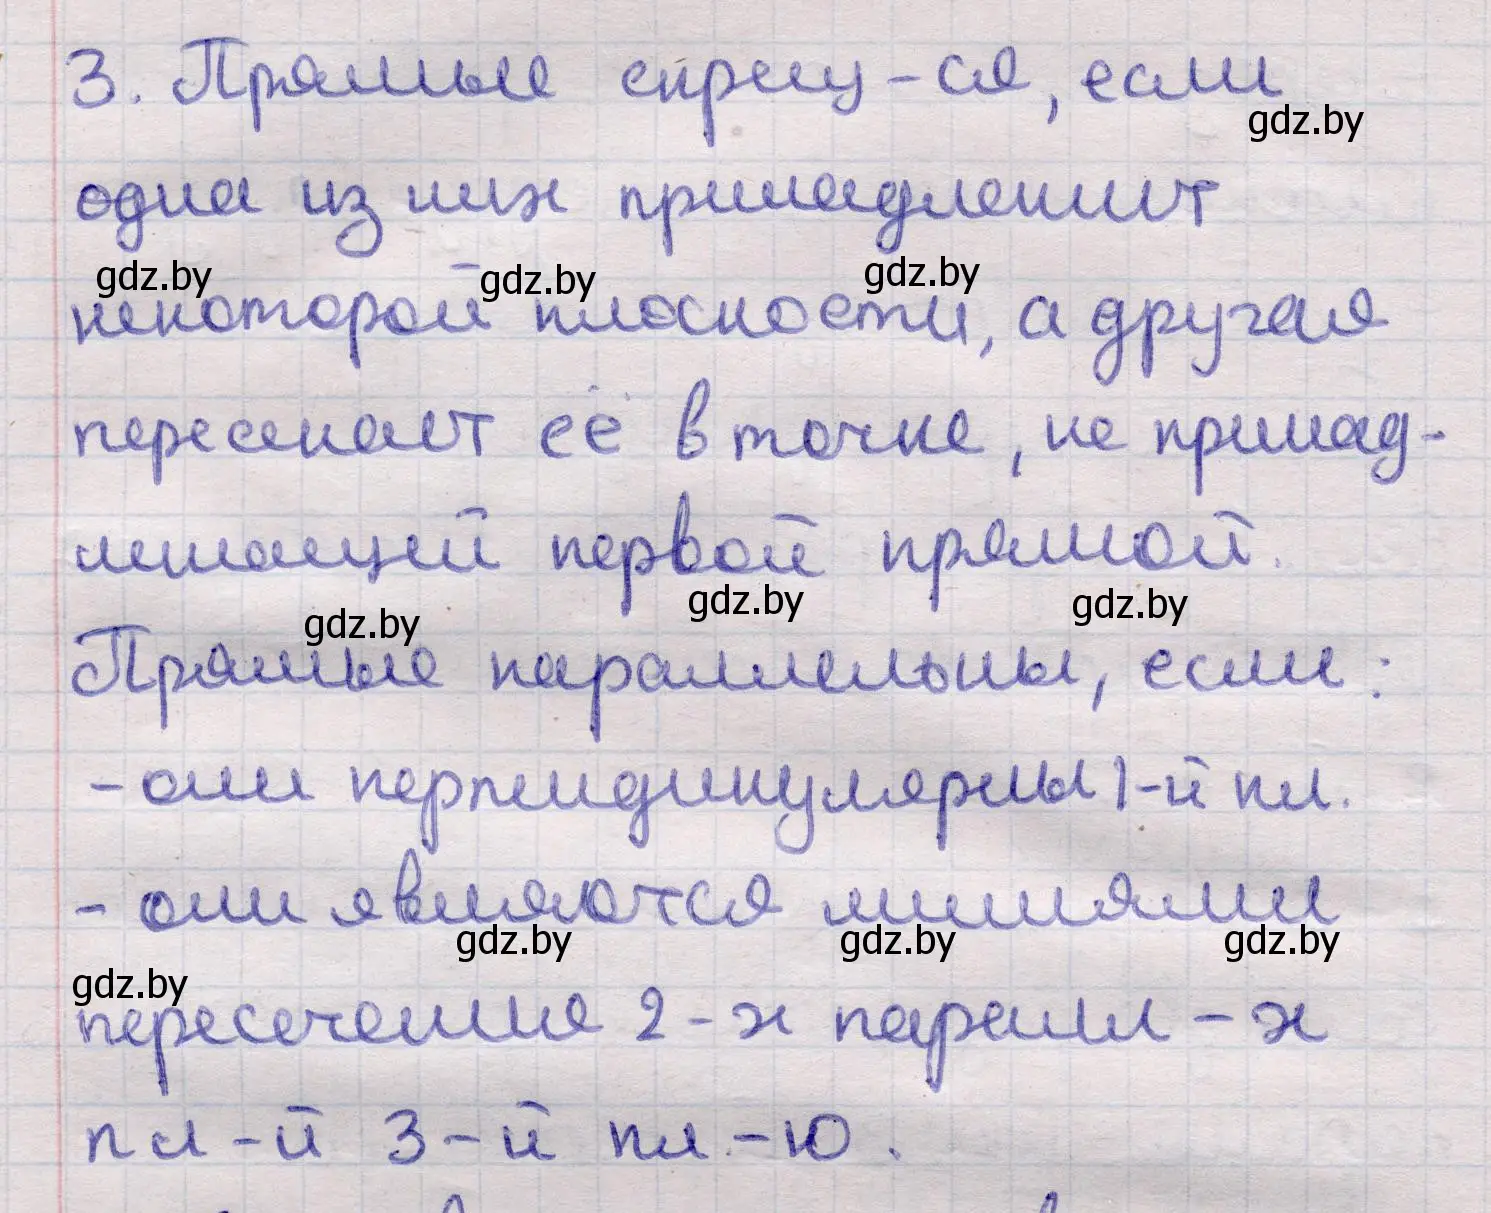 3. Прямые скрещ-ся, если
gdz.by
одна из них принадлежит
gdz.by gdz.by gdz.by
некоторой плоскости, а другая
пересекает её в точке, не принад-
лежащей первой прямой.
gdz.by gdz.by gdz.by
Прямые параллельны, если:
- они перпендикулярны 1-й пл.
- они являются линиями
gdz.by gdz.by gdz.by
gdz.by
пересечения 2-х паралл-х
пл-й 3-й пл.-ю.